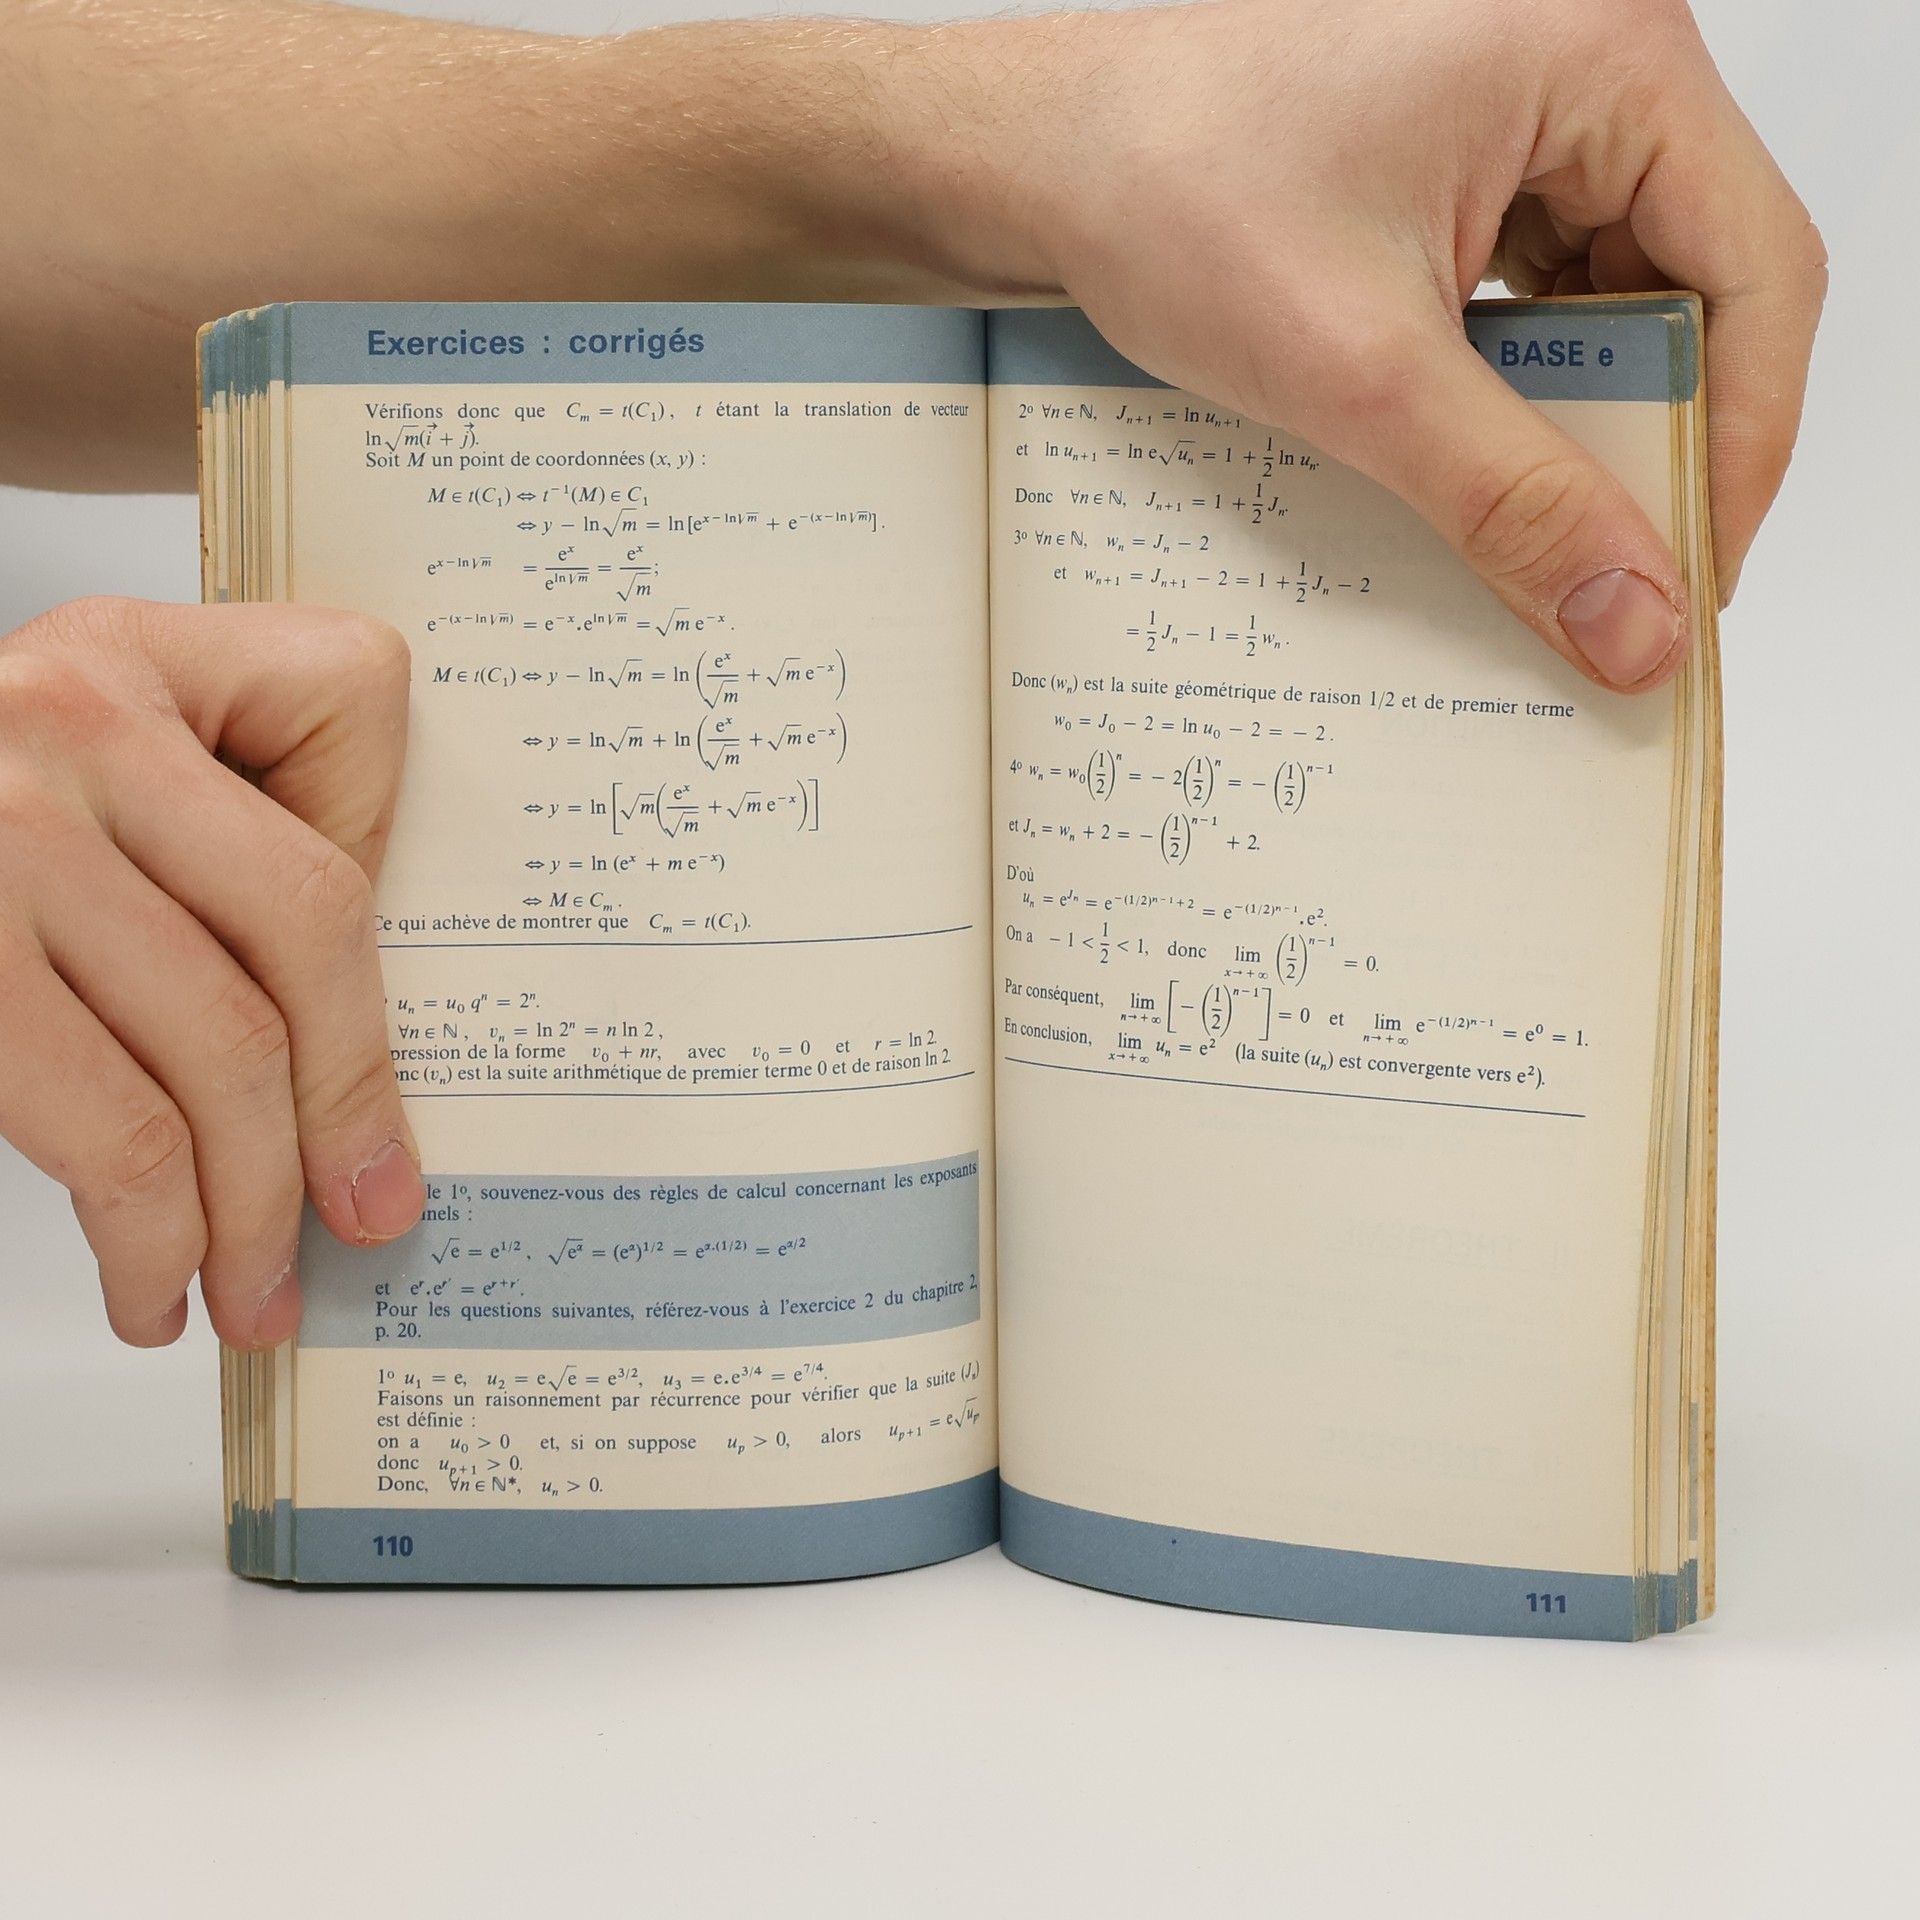 Exercices : corrigés
Vérifions donc que C_m = t(C_1), t étant la translation de vecteur
ln √m(i⃗ + j⃗).
Soit M un point de coordonnées (x, y) :
M ∈ t(C_1) ⇔ t⁻¹(M) ∈ C_1
⇔ y − ln √m = ln [e^{x − ln √m} + e^{−(x − ln √m)}] .
e^{x − ln √m} = e^x / e^{ln √m} = e^x / √m ;
e^{−(x − ln √m)} = e^{−x}.e^{ln √m} = √m e^{−x} .
M ∈ t(C_1) ⇔ y − ln √m = ln (e^x / √m + √m e^{−x})
⇔ y = ln √m + ln (e^x / √m + √m e^{−x})
⇔ y = ln [√m(e^x / √m + √m e^{−x})]
⇔ y = ln (e^x + m e^{−x})
⇔ M ∈ C_m .
Ce qui achève de montrer que C_m = t(C_1).
u_n = u_0 q^n = 2^n.
∀n ∈ ℕ , v_n = ln 2^n = n ln 2 ,
de la forme v_0 + nr, avec v_0 = 0 et r = ln 2.
(v_n) est la suite arithmétique de premier terme 0 et de raison ln 2.
le 1º, souvenez-vous des règles de calcul concernant les exposants
:
√e = e^{1/2} , √e^α = (e^α)^{1/2} = e^{α.(1/2)} = e^{α/2}
et e^r.e^{r′} = e^{r+r′}.
Pour les questions suivantes, référez-vous à l'exercice 2 du chapitre 2,
p. 20.
1º u_1 = e, u_2 = e√e = e^{3/2}, u_3 = e.e^{3/4} = e^{7/4}.
Faisons un raisonnement par récurrence pour vérifier que la suite (J_n)
est définie :
on a u_0 > 0 et, si on suppose u_p > 0, alors u_{p+1} = e√u_p,
donc u_{p+1} > 0.
Donc, ∀n ∈ ℕ*, u_n > 0.
110
BASE e
2º ∀n ∈ ℕ, J_{n+1} = ln u_{n+1}
et ln u_{n+1} = ln e√u_n = 1 + 1/2 ln u_n.
Donc ∀n ∈ ℕ, J_{n+1} = 1 + 1/2 J_n.
3º ∀n ∈ ℕ, w_n = J_n − 2
et w_{n+1} = J_{n+1} − 2 = 1 + 1/2 J_n − 2
= 1/2 J_n − 1 = 1/2 w_n .
Donc (w_n) est la suite géométrique de raison 1/2 et de premier terme
w_0 = J_0 − 2 = ln u_0 − 2 = − 2 .
4º w_n = w_0(1/2)^n = − 2(1/2)^n = − (1/2)^{n−1}
et J_n = w_n + 2 = − (1/2)^{n−1} + 2.
D'où
u_n = e^{J_n} = e^{−(1/2)^{n−1}+2} = e^{−(1/2)^{n−1}}.e².
On a − 1 < 1/2 < 1, donc lim_{x→+∞} (1/2)^{n−1} = 0.
Par conséquent, lim_{n→+∞} [− (1/2)^{n−1}] = 0 et lim_{n→+∞} e^{−(1/2)^{n−1}} = e⁰ = 1.
En conclusion, lim_{x→+∞} u_n = e² (la suite (u_n) est convergente vers e²).
111